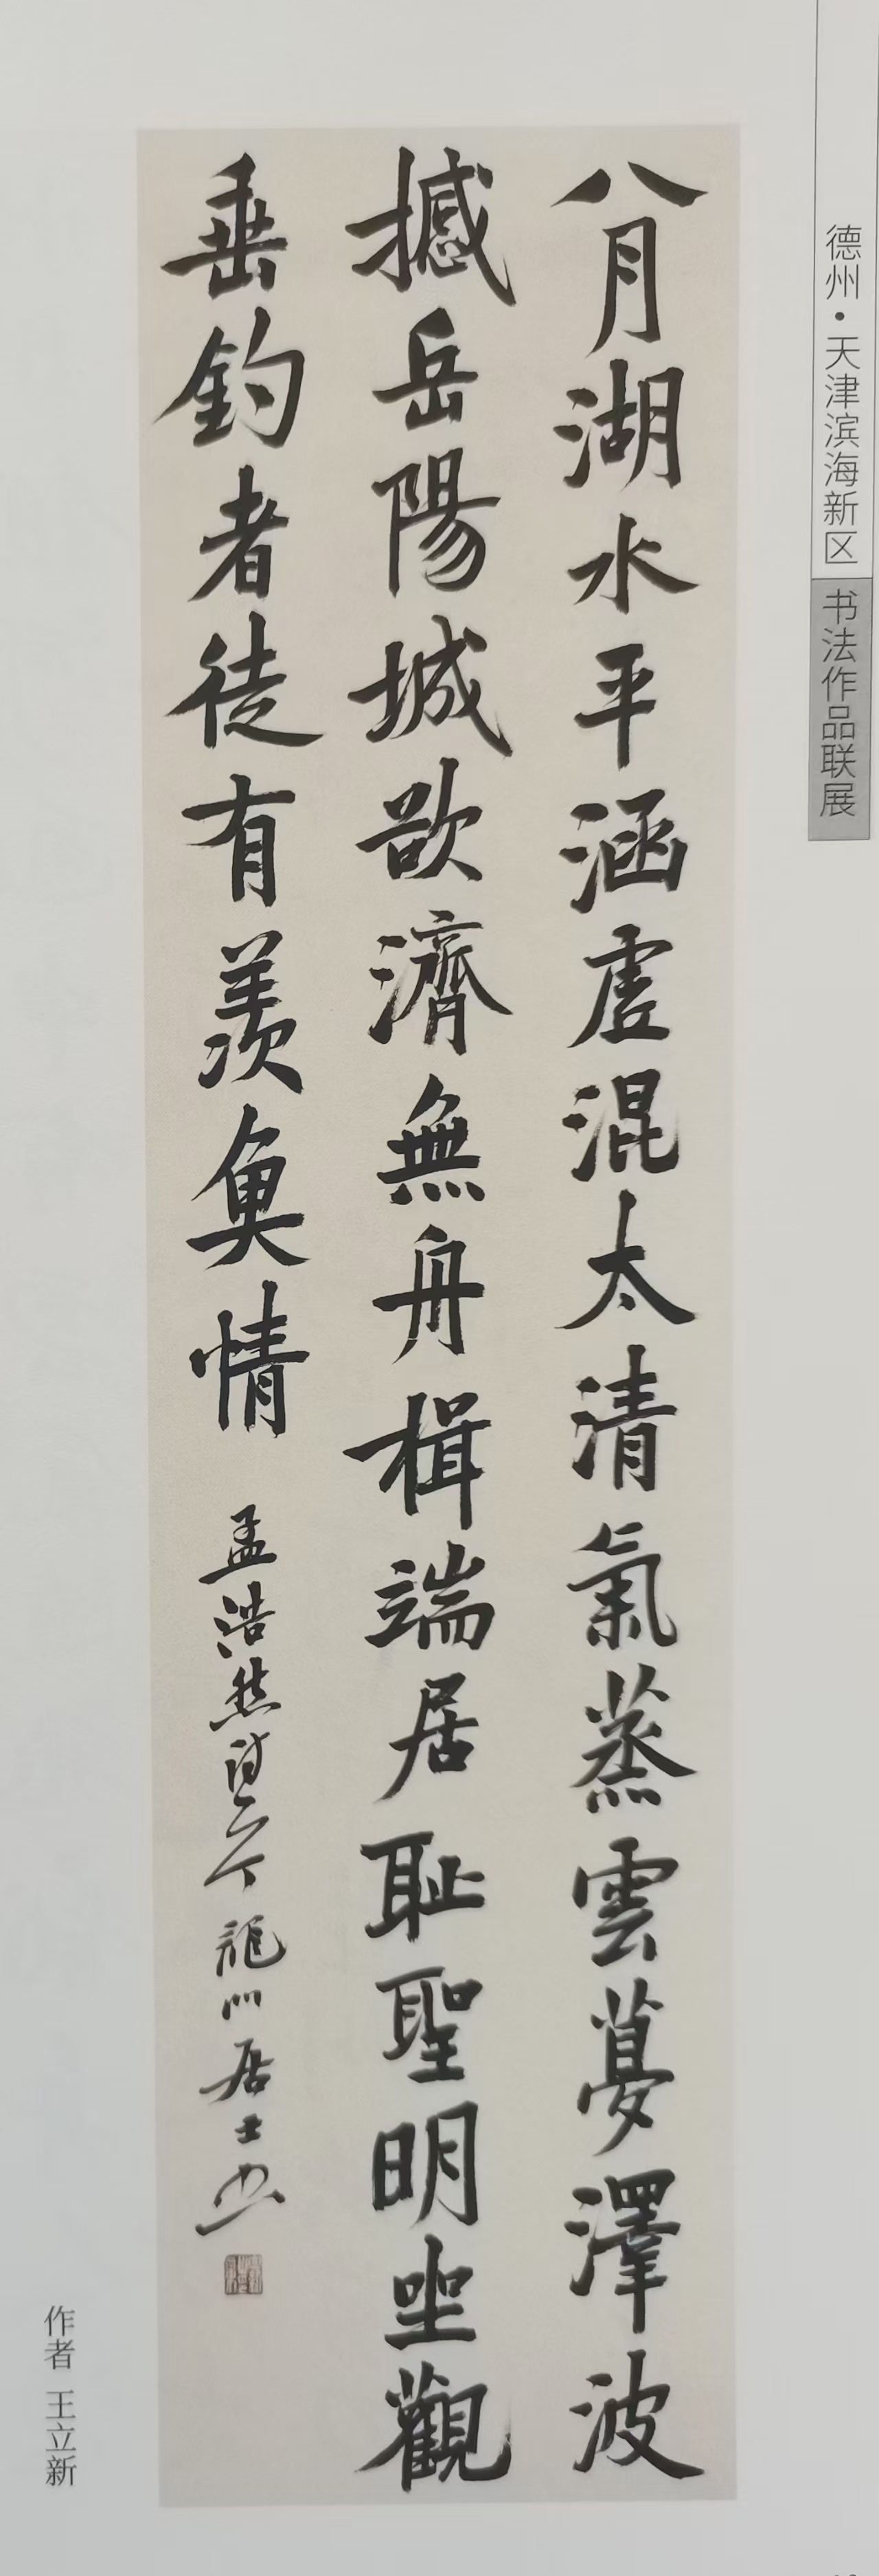 德州·天津滨海新区 书法作品联展
八月湖水平涵虛混太清氣蒸雲夢澤波
撼岳陽城欲濟無舟楫端居恥聖明坐觀
垂釣者徒有羨魚情 孟浩然詩一首 龍門居士書
作者 王立新